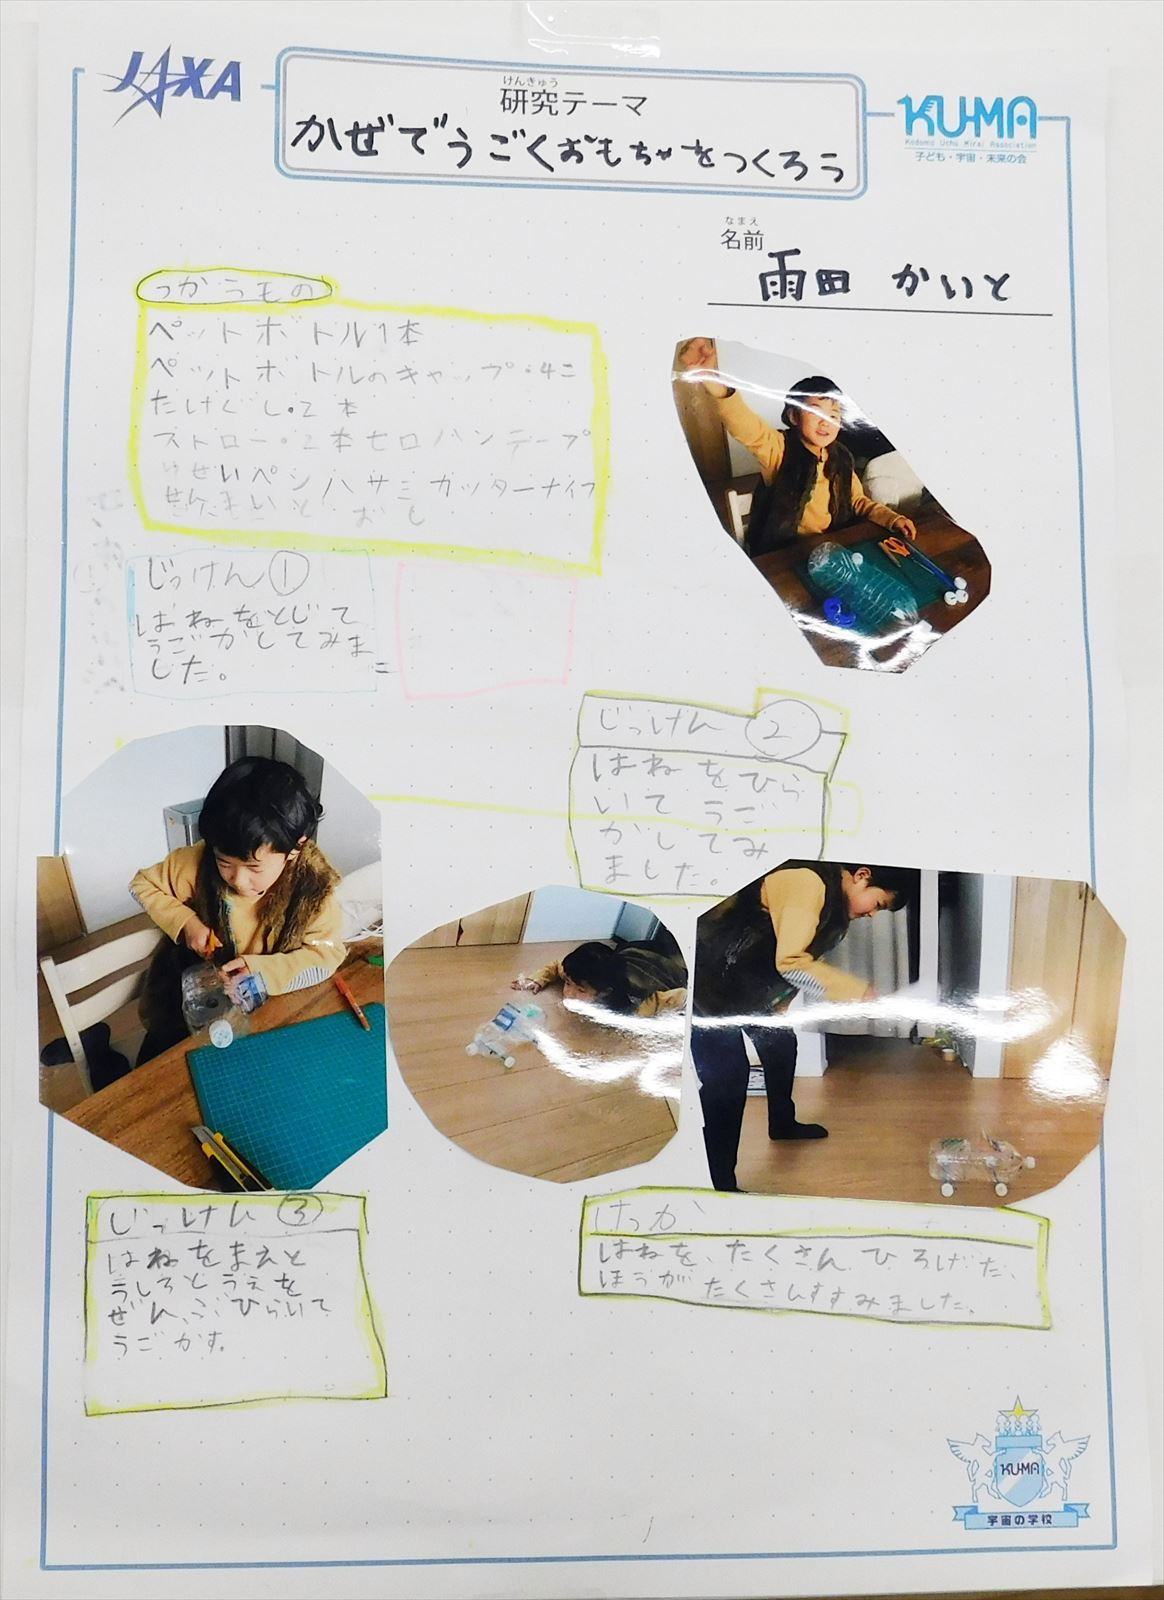 JAXA
けんきゅう
研究テーマ
かぜでうごくおもちゃをつくろう
KU-MA
Kodomo Uchu Mirai Association
子ども・宇宙・未来の会
なまえ
名前
雨田 かいと
つかうもの
ペットボトル1本
ペットボトルのキャップ・4こ
たけぐし・2本
ストロー・2本セロハンテープ
せいペン ハサミ カッターナイフ
じっけん①
はねをとじて
うごかしてみま
した。
じっけん②
はねをひら
いてうご
かしてみ
ました。
じっけん③
はねをまえと
うしろとうえを
ぜんぶひらいて
うごかす。
けっか
はねを、たくさんひろげた、
ほうがたくさんすすみました。
KU-MA
宇宙の学校